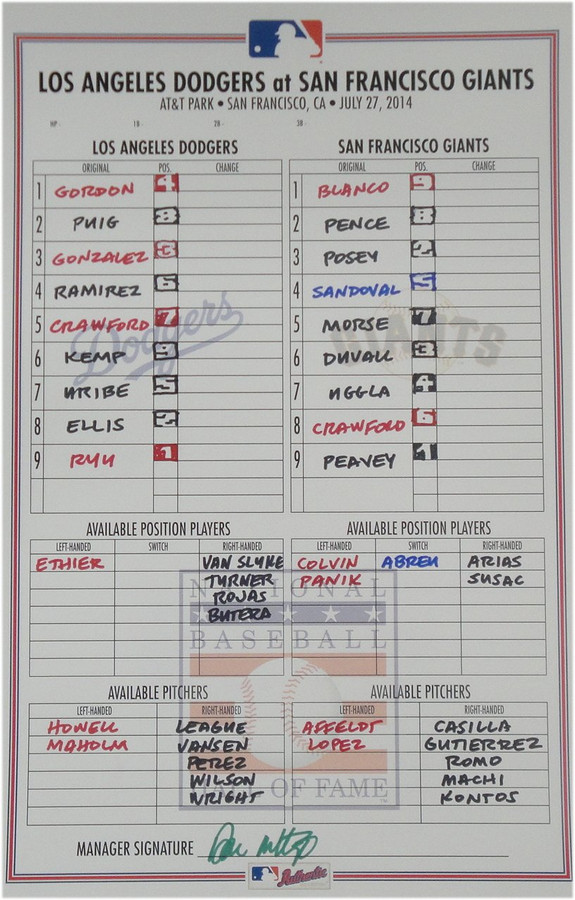 LOS ANGELES DODGERS at SAN FRANCISCO GIANTS
AT&T PARK • SAN FRANCISCO, CA • JULY 27, 2014
HP - 1B - 2B - 3B -
LOS ANGELES DODGERS
ORIGINAL POS. CHANGE
1 GORDON 4
2 PUIG 8
3 GONZALEZ 3
4 RAMIREZ 6
5 CRAWFORD 7
6 KEMP 9
7 URIBE 5
8 ELLIS 2
9 RYU 1
Dodgers
SAN FRANCISCO GIANTS
ORIGINAL POS. CHANGE
1 BLANCO 9
2 PENCE 8
3 POSEY 2
4 SANDOVAL 5
5 MORSE 7
6 DUVALL 3
7 UGGLA 4
8 CRAWFORD 6
9 PEAVEY 1
GIANTS
AVAILABLE POSITION PLAYERS
LEFT-HANDED SWITCH RIGHT-HANDED
ETHIER VAN SLYKE
TURNER
ROJAS
BUTERA
AVAILABLE POSITION PLAYERS
LEFT-HANDED SWITCH RIGHT-HANDED
COLVIN ABREU ARIAS
PANIK SUSAC
NATIONAL
BASEBALL
HALL OF FAME
AVAILABLE PITCHERS
LEFT-HANDED RIGHT-HANDED
HOWELL LEAGUE
MAHOLM JANSEN
PEREZ
WILSON
WRIGHT
AVAILABLE PITCHERS
LEFT-HANDED RIGHT-HANDED
AFFELDT CASILLA
LOPEZ GUTIERREZ
ROMO
MACHI
KONTOS
MANAGER SIGNATURE
Authentic